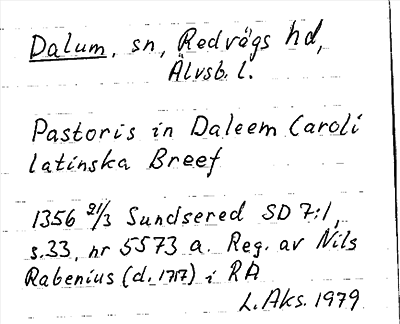 Dalum, sn, Redvägs hd,
Älvsb. l.
Pastoris in Daleem Caroli
latinska Breef
1356 21/3 Sundsered SD 7:1,
s.33, nr 5573 a. Reg. av Nils
Rabenius (d. 1717) i RA
L. Aks. 1979